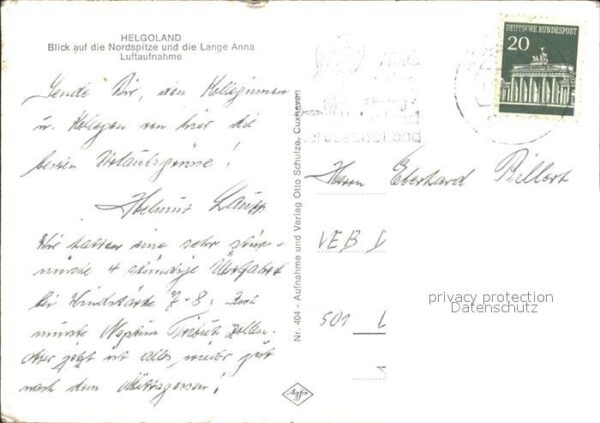 HELGOLAND
Blick auf die Nordspitze und die Lange Anna
Luftaufnahme
Sende Dir, den Kolleginnen
u. Kollegen von hier die
besten Urlaubsgrüsse!
Helmut
Wir hatten eine sehr stür-
mische 4 stündige Überfahrt
bei Windstärke 7-8.
musste Neptun Tribut zollen.
Aber jetzt ist alles wieder gut
nach dem Mittagessen!
Nr. 404 - Aufnahme und Verlag Otto Schulze, Cuxhaven
Agfa
DEUTSCHE BUNDESPOST
20
Herrn Eberhard Billert
VEB
501 L
privacy protection
Datenschutz